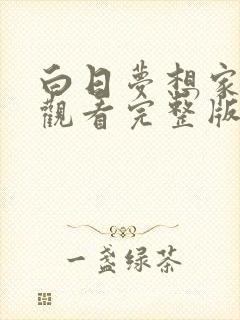 白日夢想家
觀看完整版
一盏绿茶